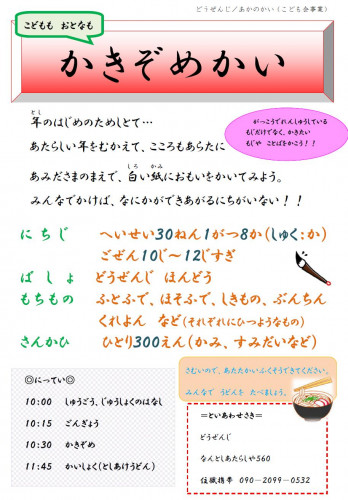 どうぜんじ／あかのかい（こども会事業）
こどもも おとなも
かきぞめかい
年のはじめのためしとて…
とし
がっこうでれんしゅうしている
もじだけでなく、かきたい
もじや ことばをかこう！！
あたらしい年をむかえて、こころもあらたに
あみださまのまえで、白い紙におもいをかいてみよう。
しろ かみ
みんなでかけば、なにかができあがるにちがいない！！
にちじ へいせい30ねん1がつ8か（しゅく：か）
ごぜん10じ～12じすぎ
ばしょ どうぜんじ ほんどう
もちもの ふとふで、ほそふで、しきもの、ぶんちん
くれよん など（それぞれにひつようなもの）
さんかひ ひとり300えん（かみ、すみだいなど）
さむいので、あたたかいふくそうできてください。
みんなで うどんを たべましょう。
◎にってい◎
10:00 しゅうごう、じゅうしょくのはなし
10:15 ごんぎょう
10:30 かきぞめ
11:45 かいしょく（としあけうどん）
＝といあわせさき＝
どうぜんじ
なんとしあたらしや560
住職携帯 090-2099-0532